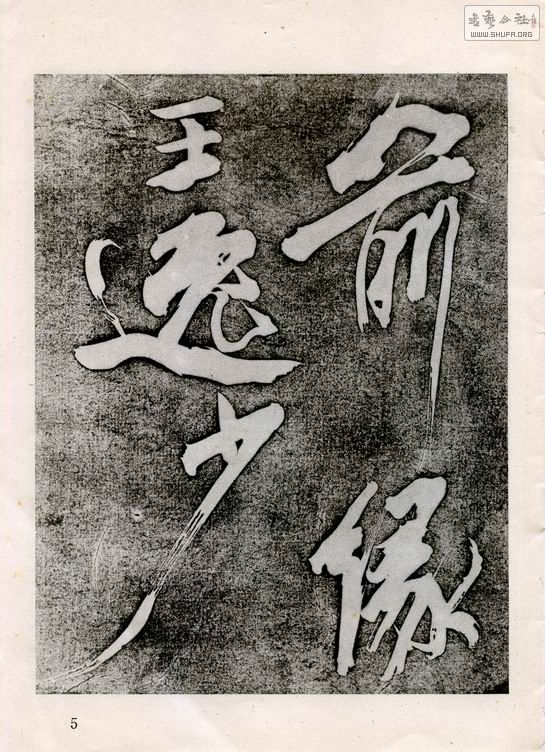 書藝公社
WWW.SHUFA.ORG
前緣
王逸少
5